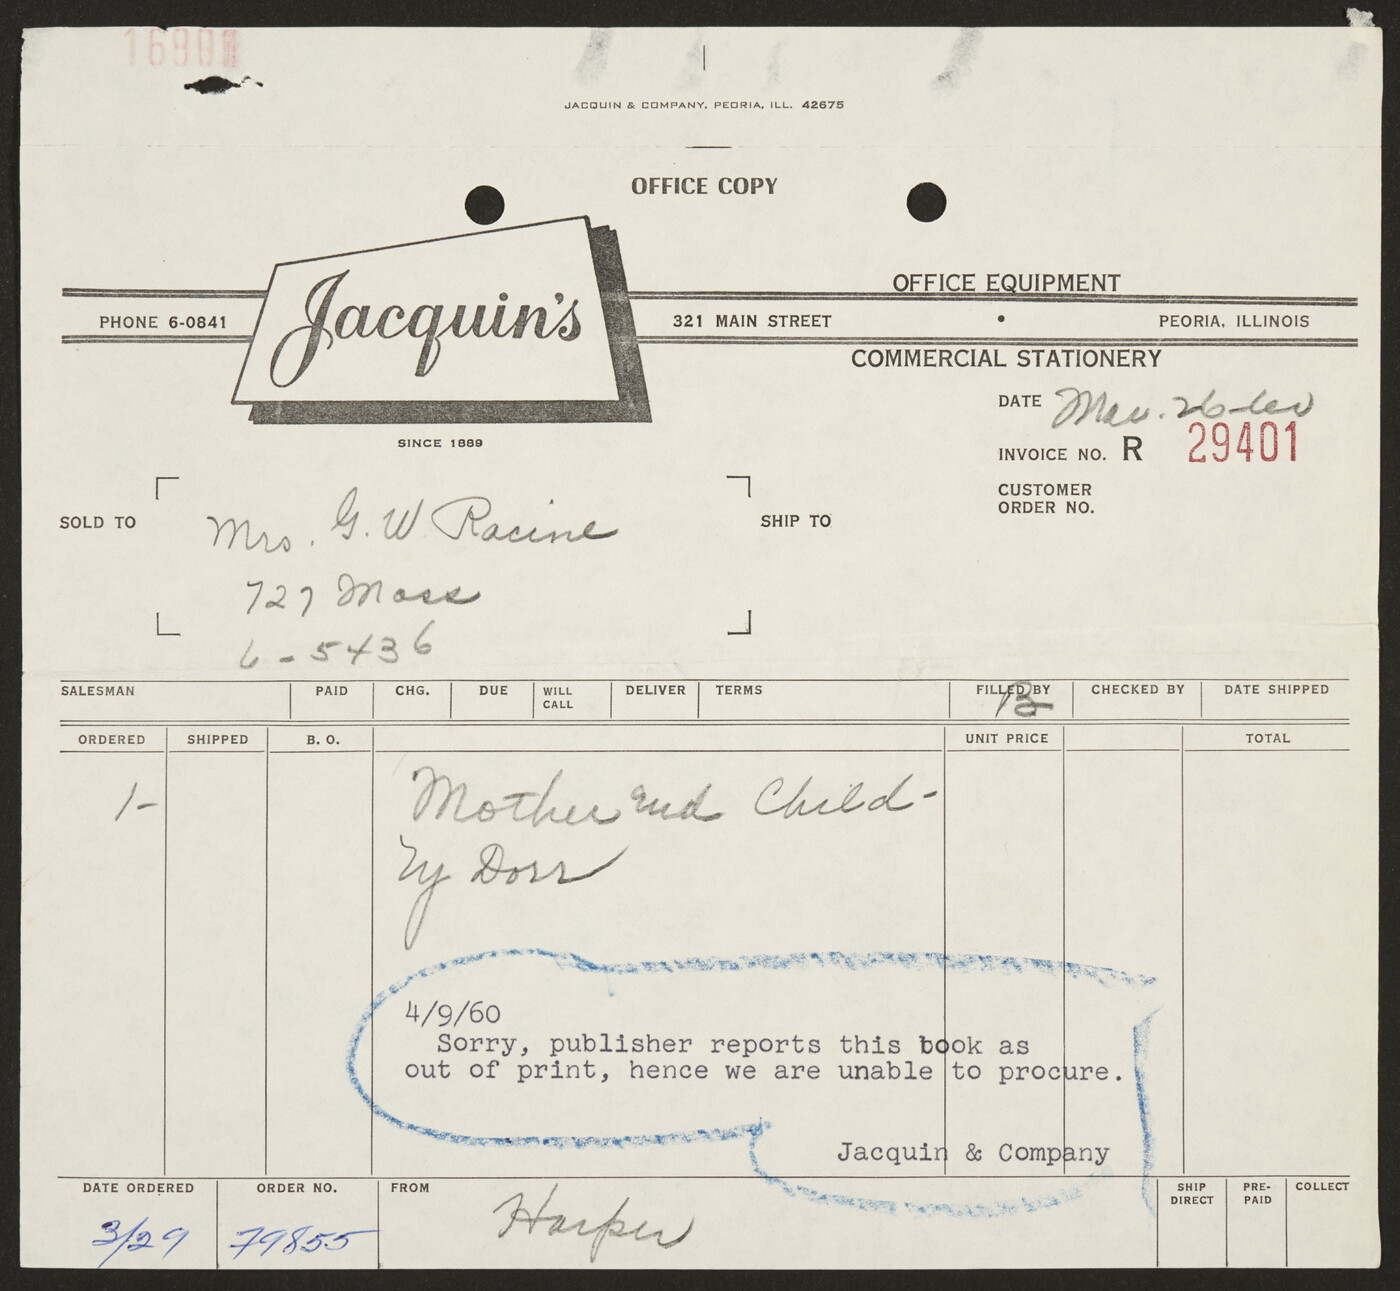 1690
JACQUIN & COMPANY, PEORIA, ILL. 42675
OFFICE COPY
Jacquin's
OFFICE EQUIPMENT
PHONE 6-0841
321 MAIN STREET • PEORIA, ILLINOIS
COMMERCIAL STATIONERY
SINCE 1889
DATE Mar. 26-60
INVOICE NO. R 29401
CUSTOMER
ORDER NO.
SOLD TO
Mrs. G. W. Racine
727 Moss
6-5436
SHIP TO
SALESMAN PAID CHG. DUE WILL CALL DELIVER TERMS FILLED BY CHECKED BY DATE SHIPPED
B
ORDERED SHIPPED B. O. UNIT PRICE TOTAL
1- Mother and Child-
by Dorr
4/9/60
Sorry, publisher reports this book as
out of print, hence we are unable to procure.
Jacquin & Company
DATE ORDERED ORDER NO. FROM SHIP DIRECT PRE-PAID COLLECT
3/29 79855 Harper